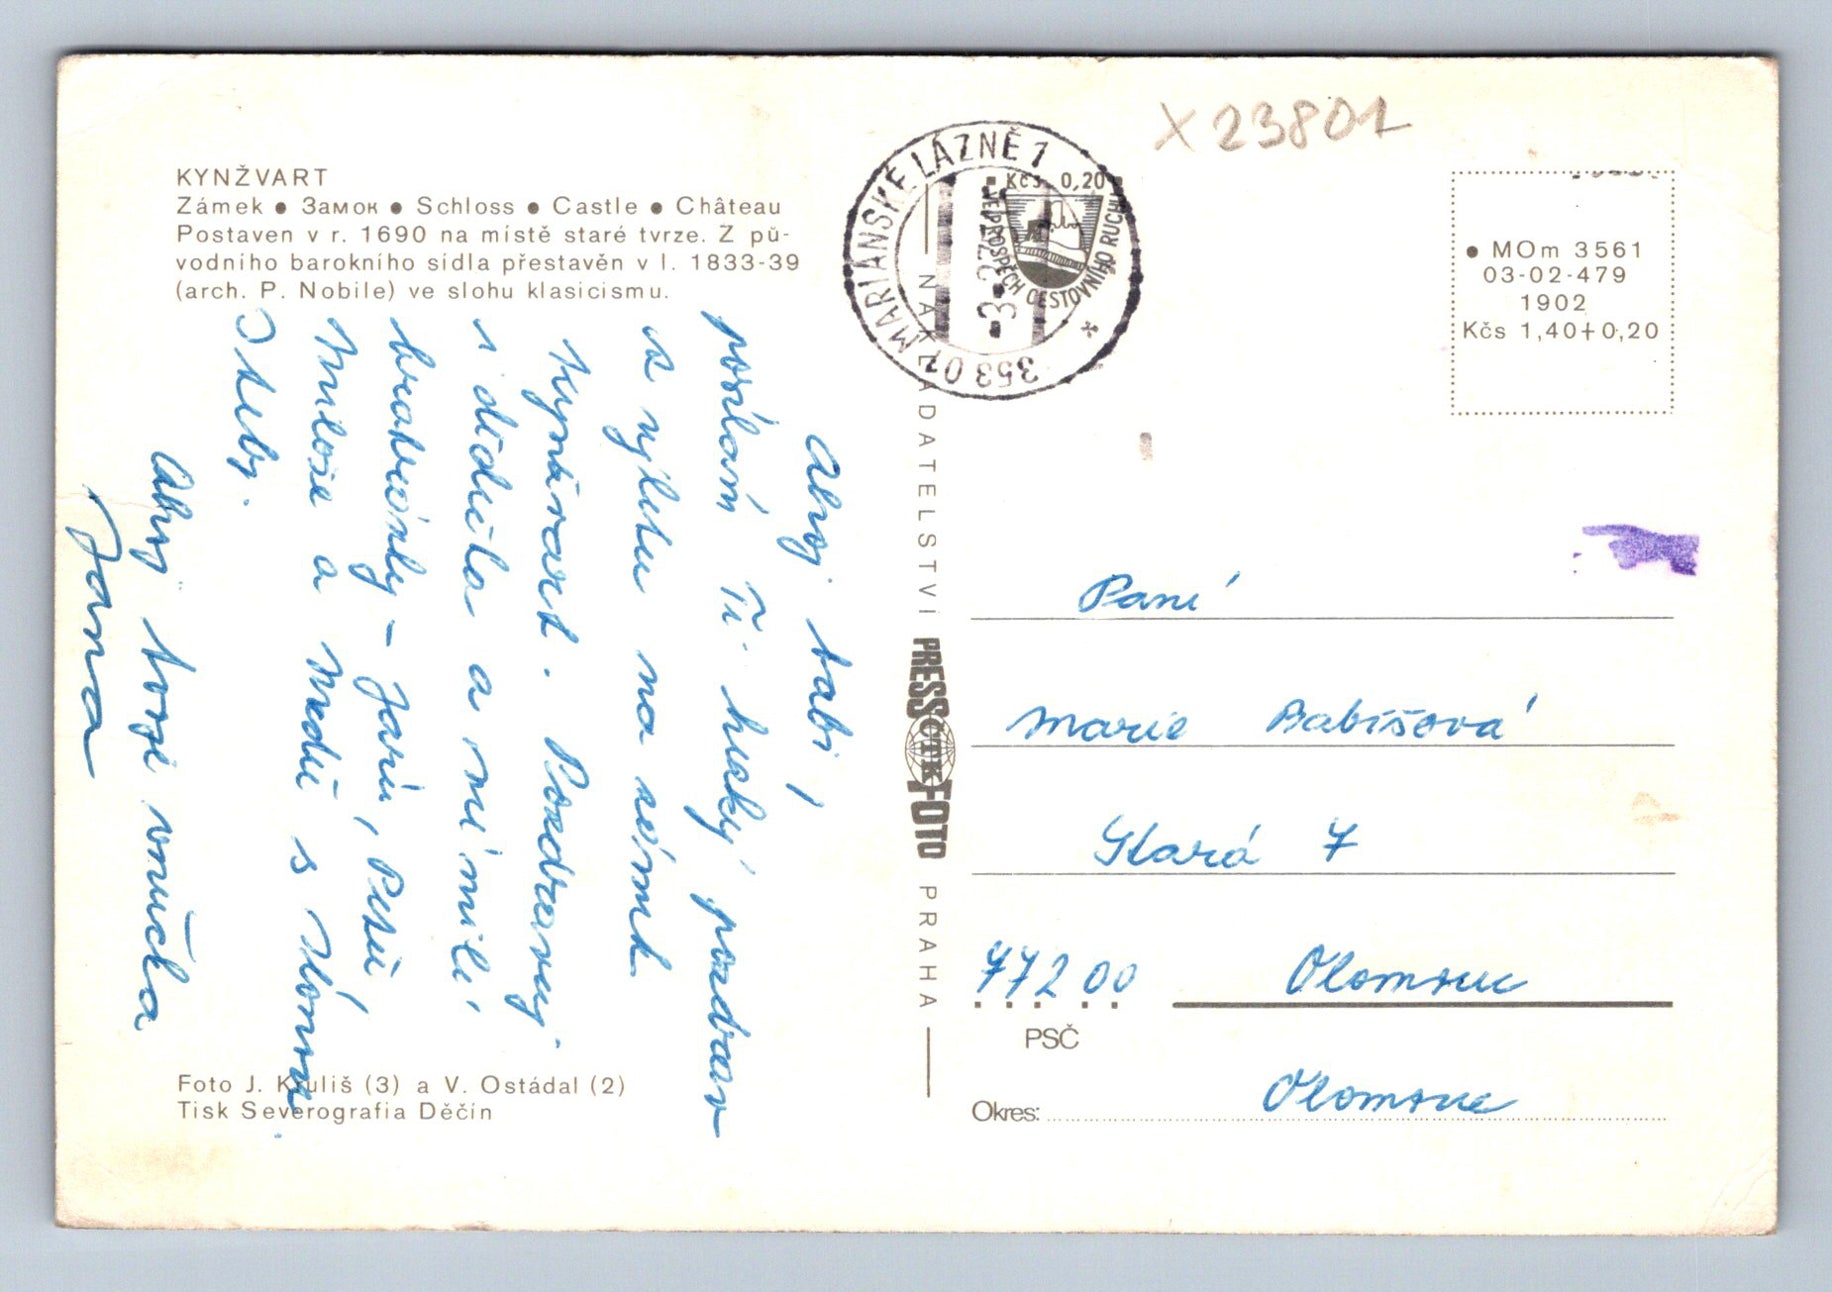 X 23801
KYNŽVART
Zámek ● Замок ● Schloss ● Castle ● Château
Postaven v r. 1690 na místě staré tvrze. Z pů-
vodního barokního sídla přestavěn v l. 1833-39
(arch. P. Nobile) ve slohu klasicismu.
Ahoj babi,
posílám Ti hezký pozdrav
z výletu na zámek
Kynžvart. Pozdravuj
i dědečka a mé milé
bratránky – Jarū, Petū,
Miloše a
s
Ahoj Tvoje vnučka
Jana
Foto J. Kruliš (3) a V. Ostádal (2)
Tisk Severografia Děčín
353 01 MARIÁNSKÉ LÁZNĚ 1
Kčs 0,20
VE PROSPĚCH CESTOVNÍHO RUCHU
NAKLADATELSTVÍ PRESSFOTO PRAHA
ČTK
● MOm 3561
03-02-479
1902
Kčs 1,40+0,20
Paní
Marie Babišová
Stará 7
772 00 Olomouc
PSČ
Okres: Olomouc